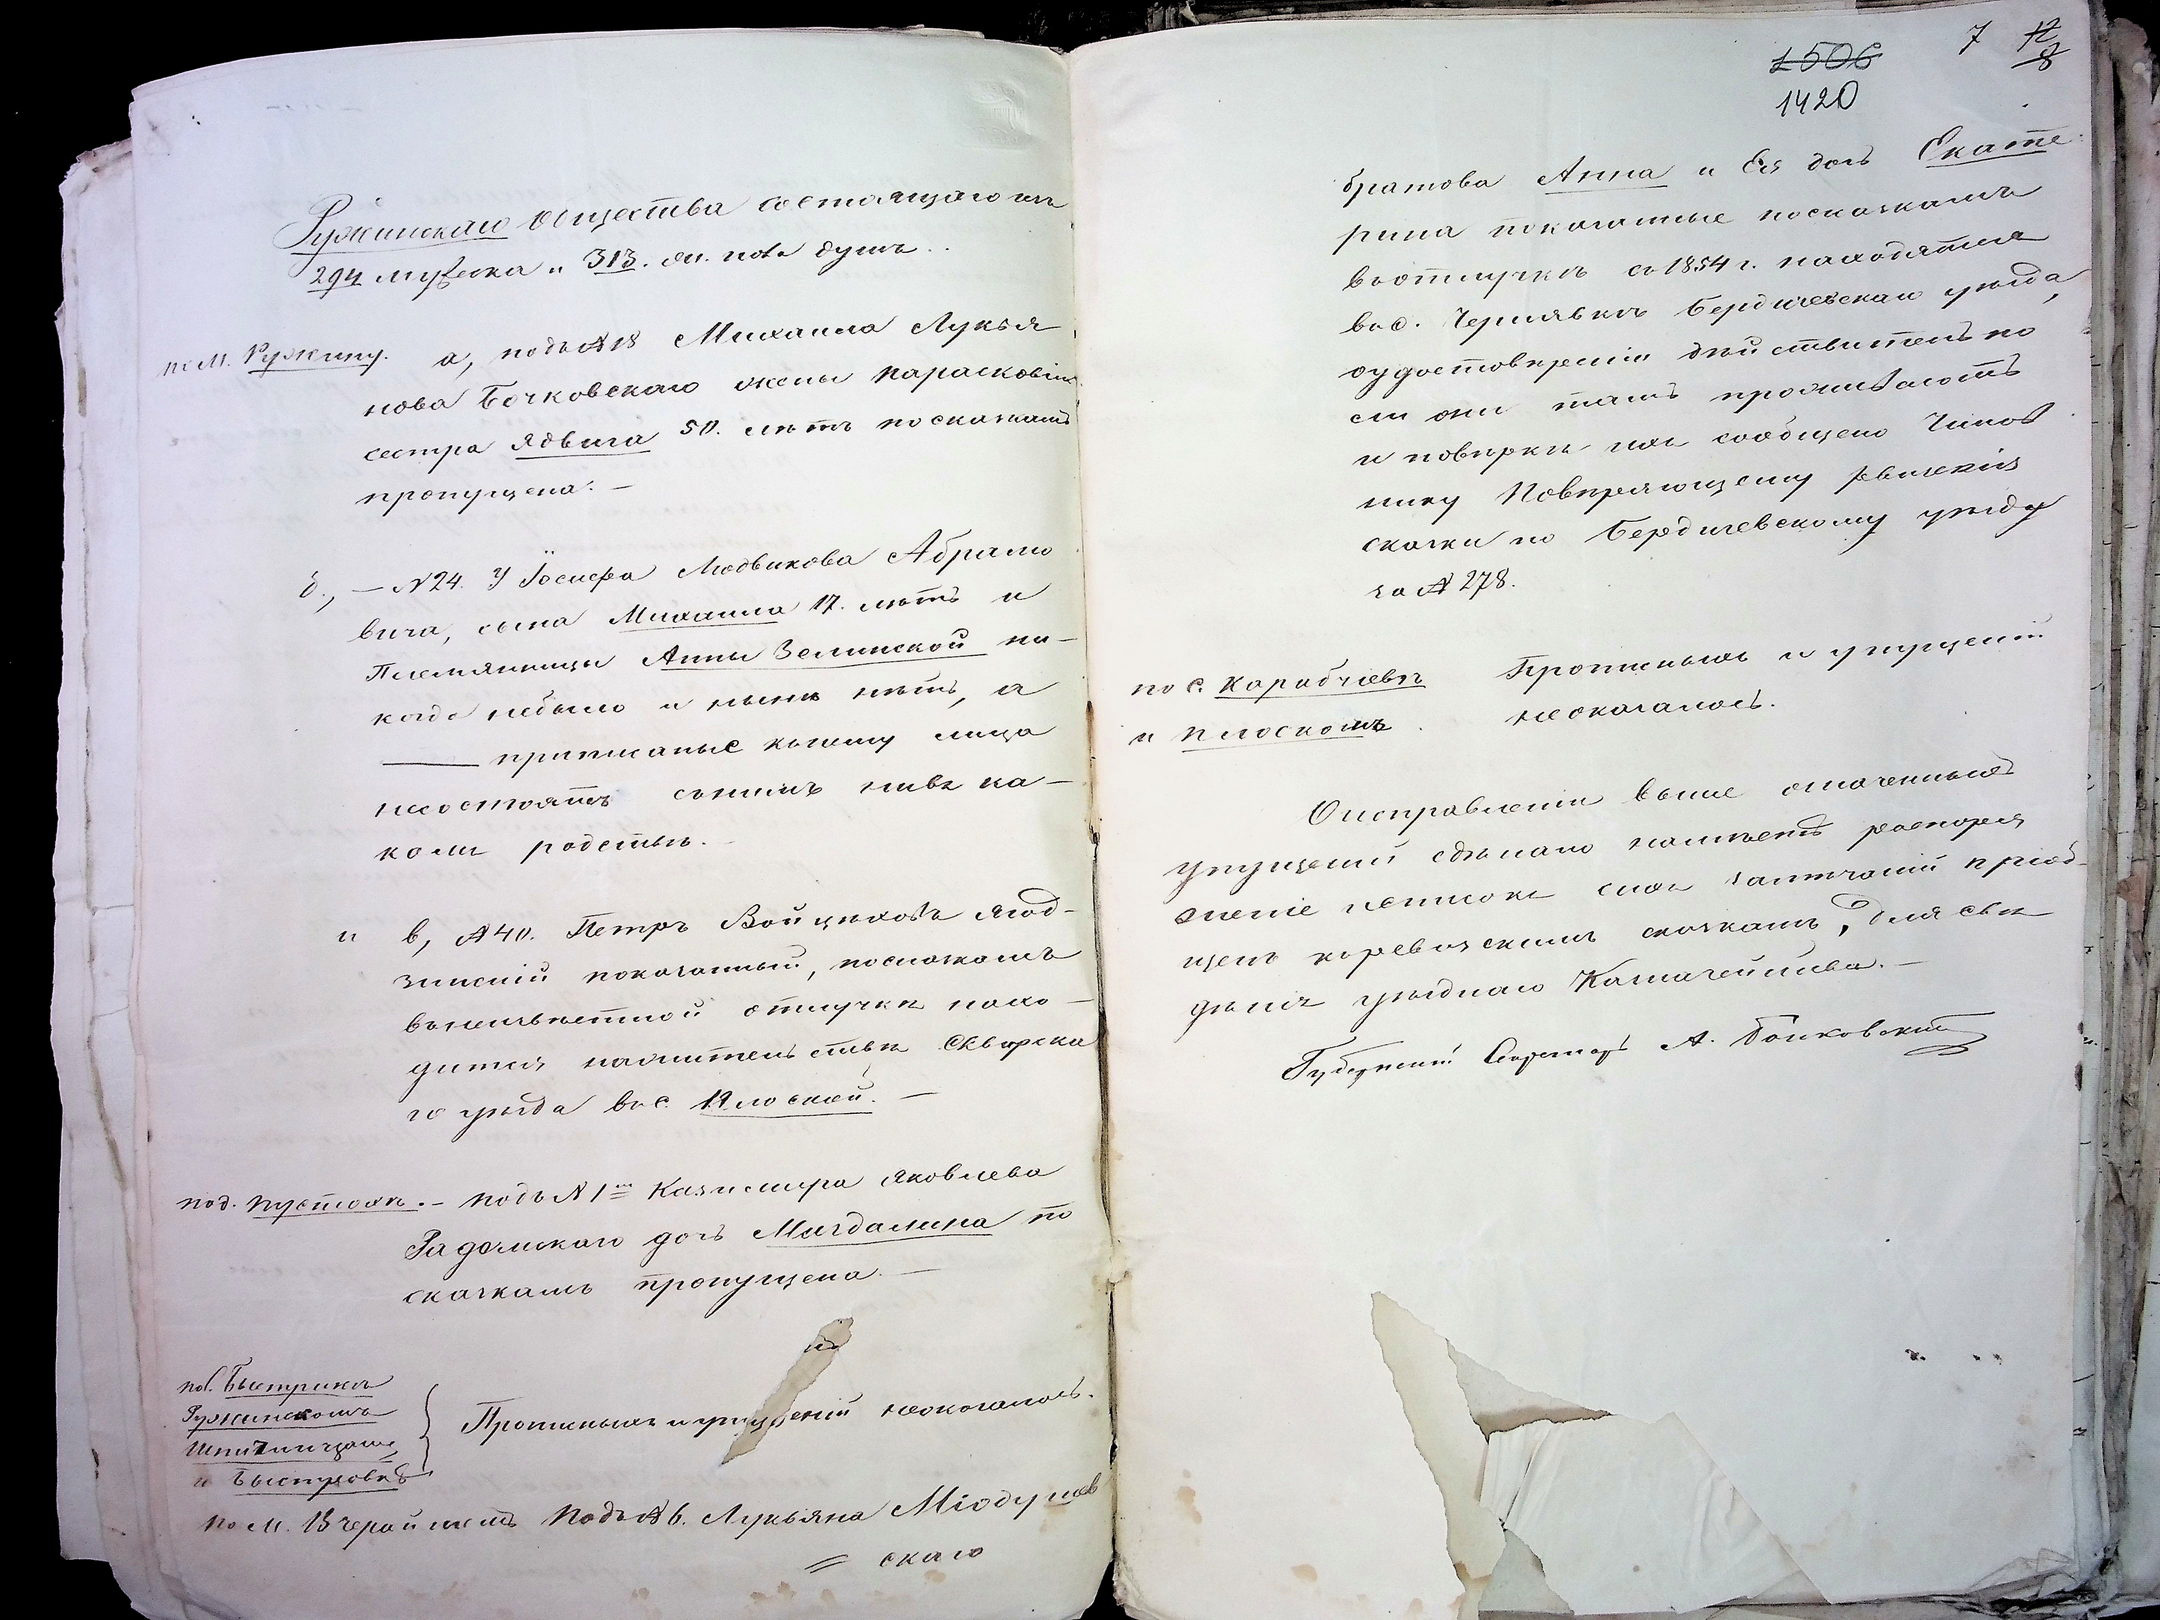 Ружинскаго Общества состоящаго изъ
294 мужеска и 313. жен. пола душъ.
по М. Ружину. а, подъ № 18 Михаила Лукья
нова Бочковскаго жены Парасковіи
сестра Ядвига 50. летъ посказкамъ
пропущена. —
б., — N 24. У Іосифа Людвикова Абрамо
вича, сына Михаила 17. летъ и
Племянницы Анны Зелинской ни-
когда небыло и ныне нетъ, а
приписаные кънему лица
несостоятъ сънимъ нивъ ка-
комъ родстве. —
и в, № 40. Петръ Войцеховъ Ягод-
зинскій показанный, посказкамъ
въ неизвестной отлучке нахо-
дится нажительстве Сквирска
го уезда въ с. Плоской. —
по д. Пустохе. — подъ N 1м Казимира Яковлева
Радомскаго дочь Магдалина по
сказкамъ пропущена. —
по с. Быстрике
Ружинскомъ
Шпичинцахъ
и Быстровке
Прописныхъ и упущеній неоказалось.
По М. Вчерайшетъ Подъ № 6. Лукьяна Міодушев
= скаго
1506
1420
7
12
8
братова Анна и Ея дочь Екате-
рина показанные посказкамъ
въ отлучке съ 1854 г. находятся
въ с. Чернявке Бердичевскаго уезда,
о удостовереніи действительно
ли они тамъ проживаютъ
и поверке ихъ сообщено Чинов
нику Поверяющему ревизкія
сказки по Бердичевскому уезду
за № 278.
по с. Карабчиеве Прописныхъ и упущеній
и Плоскомъ. неоказалось.
О исправленіи выше означенныхъ
упущеній сделано намъсте распоря
женіе исписокъ сихъ замечаній пріоб-
щенъ къревизскимъ сказкамъ, для све
денія уезднаго Казначейства. —
Губернскій Секретарь А. Бонковскій